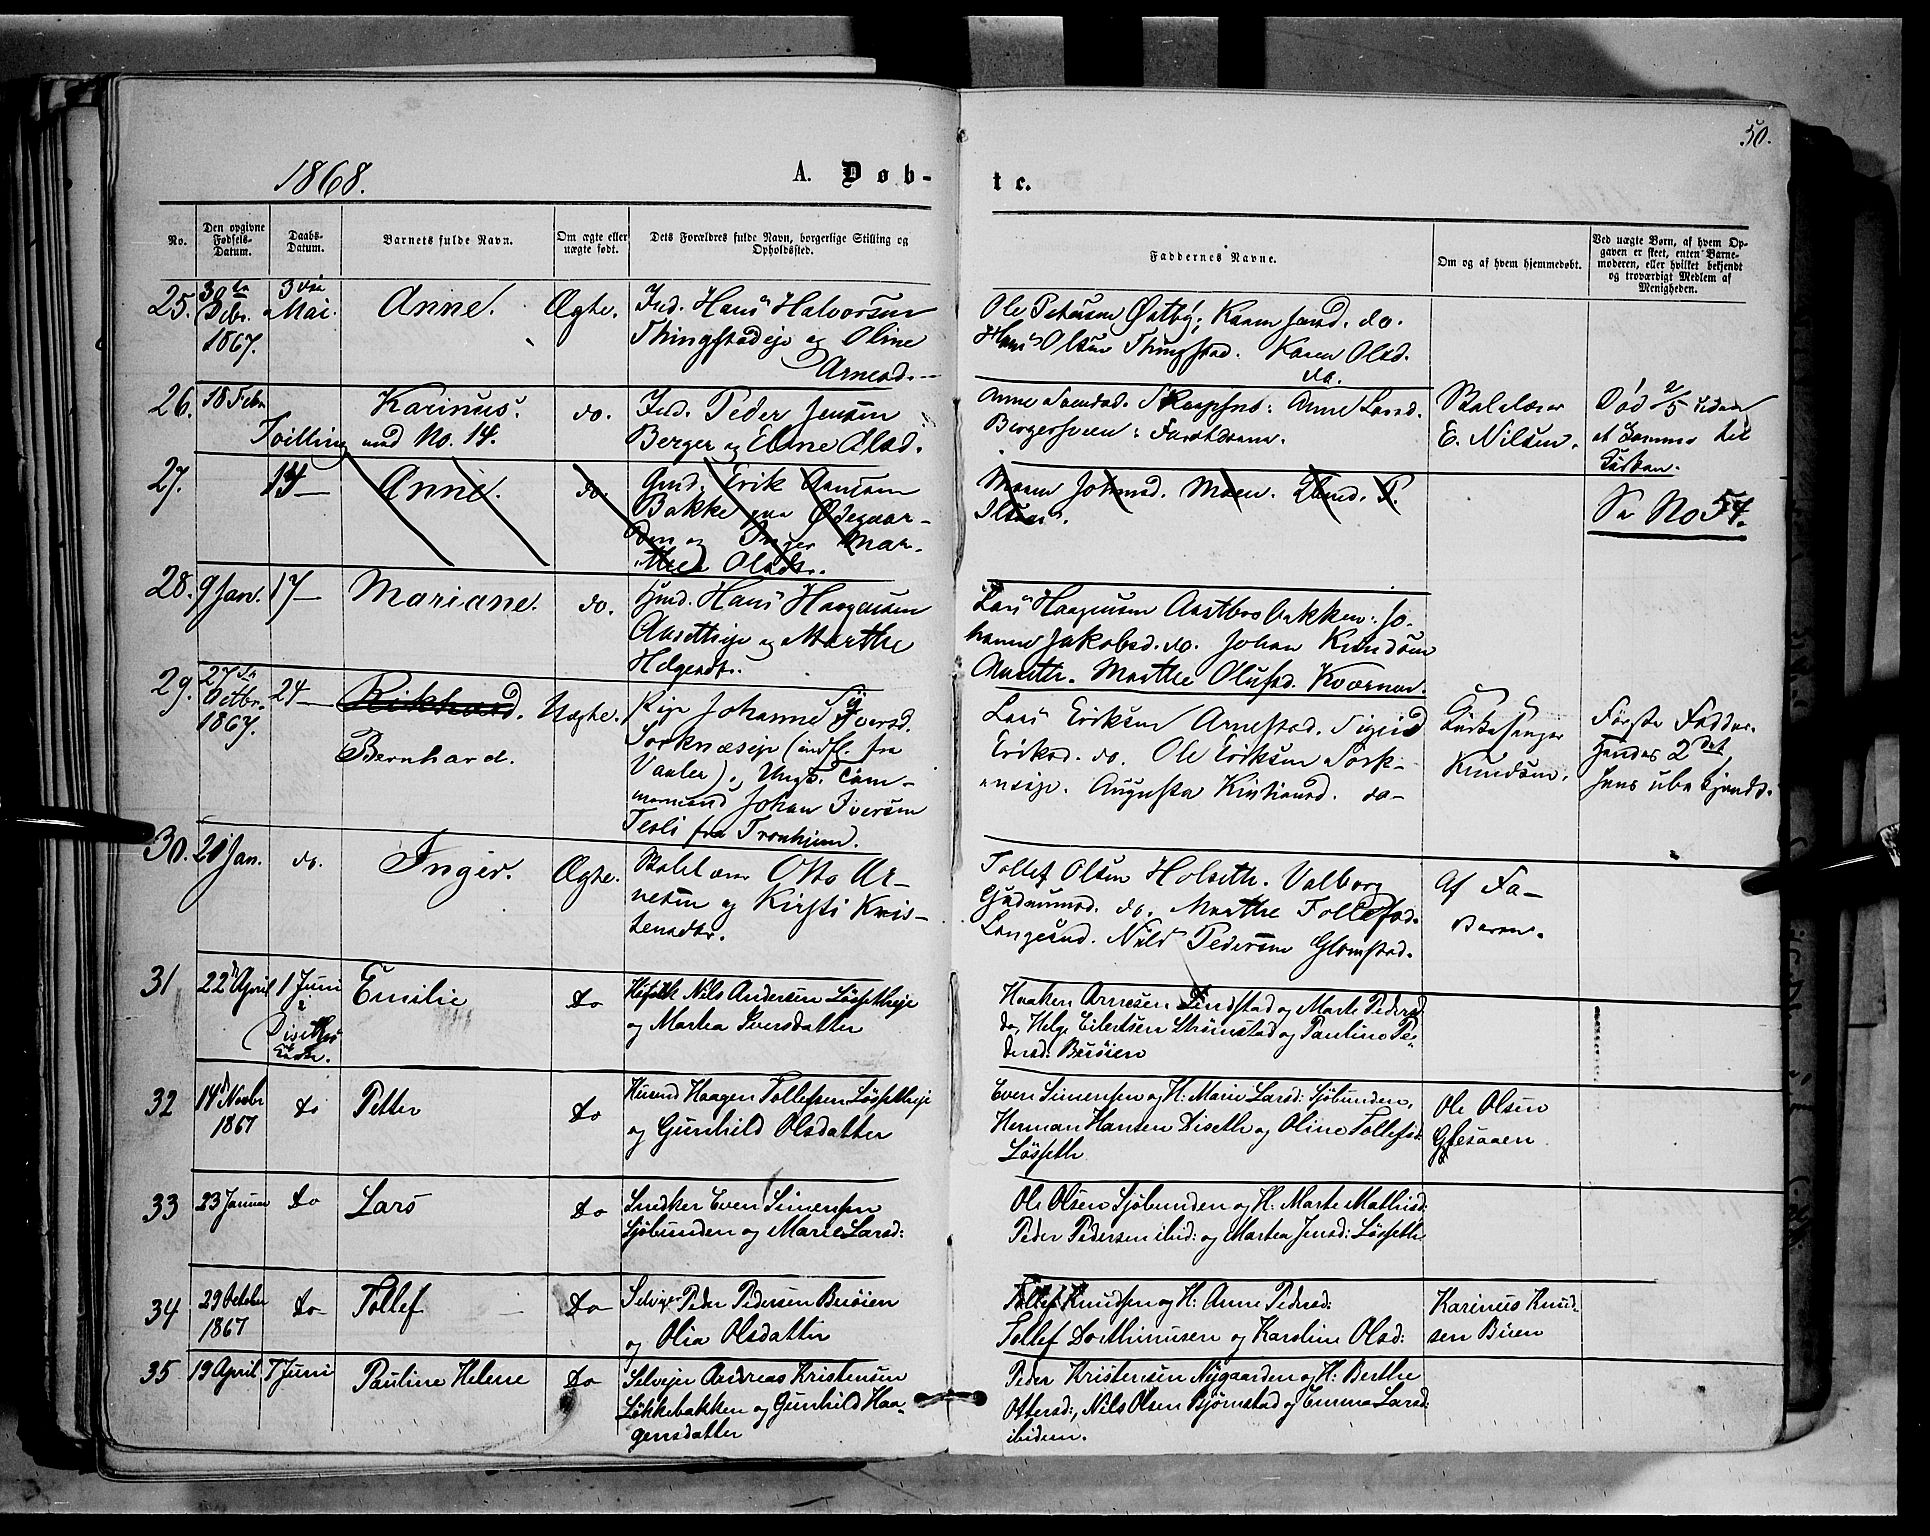 50.
1868.
A. Døb-
te.
No.
Den opgivne Fødsels-Datum.
Daabs-Datum.
Barnets fulde Navn.
Om ægte eller uægte født.
Dets Forældres fulde Navn, borgerlige Stilling og Opholdssted.
Faddernes Navne.
Om og af hvem hjemmedøbt.
Ved uægte Børn, af hvem Opgaven er skeet, enten Barnemoderen, eller hvilket bekjendt og troværdigt Medlem af Menigheden.
25. 30 Debr. 1867. 3die Mai. Anne. Ægte. Ind. Hans Halvorsen
Thingstadeje og Oline
Arnesd.
Ole Petersen Østby, Karen do.
Hans Olsen Thingstad. Karen Olsd.
do.
26. 18 Febr. Karinus. do. Ind. Peder Jensen
Tvilling med No. 14. Berger og Eline Olsd.
Anne Anne Larsd.
Skolelærer
E. Nilsen.
Død 2/5 siden
at komme til
Kirken.
27. 17 — Anne. do. Erik
Bakke paa Ødegaar-
den og Inger Mar-
thea Olsdr.
Maren Johnsd. Moen.
Se No 54.
28. 9 Jan. 17 — Mariane. do. Hans Haagensen
og Marthe
Helgesdr.
Lars Haagensen bakken. Jo-
hanne Jakobsd. do. Johan Knudsen
Marthe Olufsd. Kværnen.
29. 27de Octbr. 1867. 24 — Rikhard. Uægte. Pige Johanne Iversd.
Bernhard.
Sorknæseje (indfl. fra
Vaaler) og Ungk. Tøm-
mermand Johan Iversen
fra Tronhjem.
Lars Eriksen Arnestad. Sigrid
Eriksd. do. Ole Eriksen Sork-
Augusta Kristiansd. do-
Kirkesanger
Knudsen.
Første Fadder.
Hendes 2det
hans ubekjendt.
30. 21 Jan. do. Inger. Ægte. Skolelærer Otto Ar-
nesen og Kirsti Kris-
tensdtr.
Tollef Olsen Holseth. Valborg
Gudmunsd. do. Marthe Tollefsd.
Langesund. Nils Pedersen Glomstad.
Af Fa-
deren.
31 22 April 1 Juni i Diseths Kirke. Emilie do Nils Andersen Løsseteje
og Martea Iversdatter
Haaken Arnesen Lindstad og Marte Pedersd
do, Helge Eilertsen Strømstad og Pauline Pe-
dersd: Berøien
32 14 Novbr 1867 do Petter do Husmd Haagen Tollefsen Løsseteje
og Gunhild Olsdatter
Even Simensen og H: Marie Larsd: Sjøbunden,
Herman Hansen Diseth og Oline Tollefsd:
Løsseth
Ole Olsen
Glesaaen
33 23 Januar do Lars do Snedker Even Simensen
Sjøbunden og Marie Larsd:
Ole Olsen Sjøbunden og H: Marte Mathisd:
Peder Pedersen ibid: og Martea Jensd: Løsseth
34 29 October 1867 do Tollef do Selvejer Peder Pedersen Berøien
og Olia Olsdatter
Tollef Knudsen og H: Anne Pedersd:
Tollef Dorthinusen og Karoline Olsd:
Karinus Knud-
sen Buen
35 19 April 7 Juni Pauline Helene do Selvejer Andreas Kristensen
Løkkebakken og Gunhild Haa-
gensdatter
Peder Kristensen Nygaarden og H: Berthe
Ottersd:, Nils Olsen Bjørnstad og Emma Larsd:
ibidem.